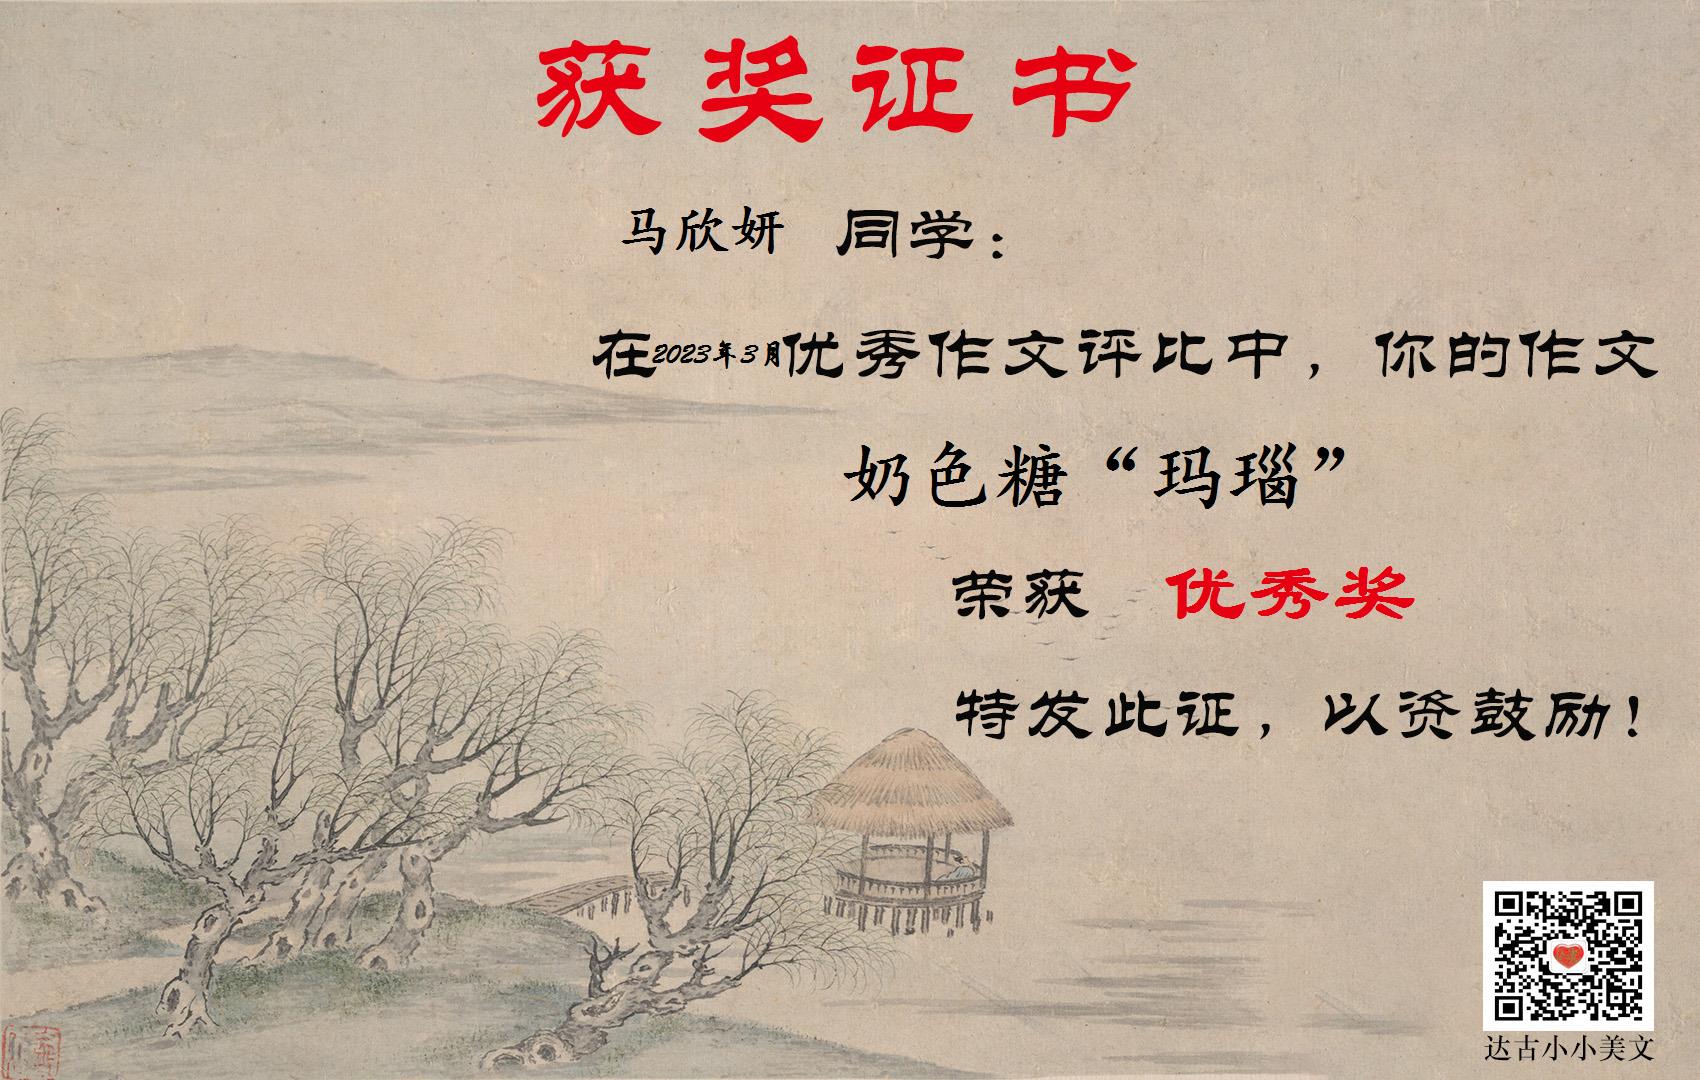 获奖证书
马欣妍 同学：
在2023年3月优秀作文评比中，你的作文
奶色糖“玛瑙”
荣获 优秀奖
特发此证，以资鼓励！
达古小小美文